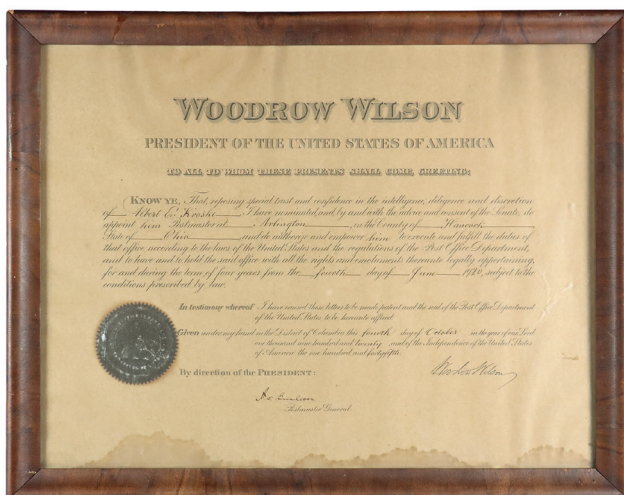 WOODROW WILSON
PRESIDENT OF THE UNITED STATES OF AMERICA
TO ALL TO WHOM THESE PRESENTS SHALL COME, GREETING:
KNOW YE, That, reposing special trust and confidence in the intelligence, diligence and discretion
of Albert E. I have nominated, and, by and with the advice and consent of the Senate, do
appoint him Postmaster at Arlington in the County of Hancock
State of Ohio and do authorize and empower him to execute and fulfill the duties of
that office according to the laws of the United States and the regulations of the Post Office Department,
and to have and to hold the said office with all the rights and emoluments thereunto legally appertaining,
for and during the term of four years from the fourth day of June 1920, subject to the
conditions prescribed by law.
In testimony whereof I have caused these letters to be made patent and the seal of the Post Office Department
of the United States to be hereunto affixed.
Given under my hand in the District of Columbia this fourth day of October in the year of our Lord
one thousand nine hundred and twenty and of the Independence of the United States
of America the one hundred and forty fifth.
By direction of the PRESIDENT:
Woodrow Wilson
Postmaster General